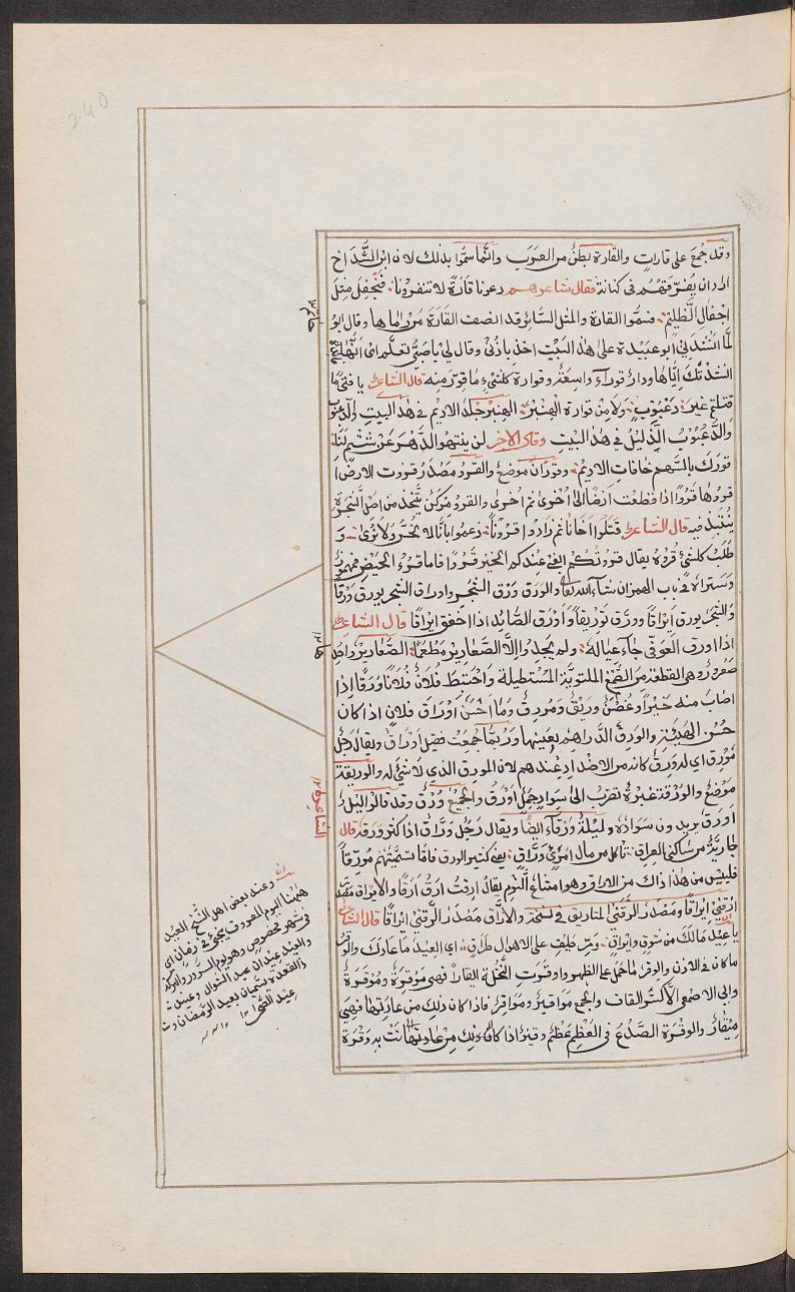 240
وقد جُمِعَ على قاراتٍ والقارة بطنٌ من العرب وانما سمّوا بذلك لان ابن الشَّدَّاخ
اراد ان يُفرّقهُم فى كنانة فقال شاعرهم دعونا قارَةً لا تنفرونا فنجفل مثل
اجفال الظليم فسمّوا القارة والمثل السّائر قد انصف القارَة مَنْ راماها وقال ابو
لمّا انشدنى ابو عبيدة على هذا البيت اخذ باذنى وقال لى يا صبىّ تعلم اى
انشدتك ايّاها ودارٌ قوراء واسعة وقوارة كلشىء ما قوّر منه قال الشاعر يا فتى ما
قتلتم غير دعبوب ولا من قوارة الهِنَّبْر الهنبر جلد الاديم فى هذا البيت
والدّعبوب الذليل فى هذا البيت وقال الآخر لن ينتهوا الدهر عن شتم لنا
قورك بالسهم حافات الاديم وقوران موضع والقرو مصدر قروت الارض
قروها قروًا اذا قطعت ارضًا الى اُخرى ثم اُخرى والقرو مركن يتّخذ من اصل النخرة
ينتبذ فيه قال الشاعر قتلوا اخانا ثم زاروا قرونا زعموا باننا لا نحسّ ولا نرى
طلب كلشىء قروه يقال قروتكم ابغى عندكم الخير قروًا فاما قروء الحيض فمهموز
وستراه فى باب الهمز ان شاء الله تعالى والورق ورق الشجر واوراق الشجر يورق ورقًا
والشجر يورق ايراقًا وورّق توريقًا واَورق الصّائد اذا اخفق ايراقًا قال الشاعر
اذا اورق العوفى جاء عياله ولم يجدوا الا الصّعارير مطعما الصعارير واحدها
صعرور وهى القطعة من الصّمغ الملتوية المستطيلة واختبط فلان فلانًا ورقًا اذا
اصاب منه خيرًا وغصن وريق ومورق وما احسن اوراق فلان اذا كان
حسن الهيئة والورق الدراهم بعينها وربما جمعت فقيل اوراق ويقال رجل
مورق اى له ورق كانه من الاضداد عندهم لان المورق الذى لا شىء له والوريقة
موضع والورقة غبرة تضرب الى سواد جمل اورق والجميع ورق وقد قالوا ليل
اورق يريدون سواده وليلة ورقاء ايضًا ويقال رجل ورّاق اذا كثر ورقه قال
جارية من ساكنى العراق تاكل من مال امرئ ورّاق يعنى كثير الورق فاما تسميتهم مورقًا
فليس من هذا ذاك من الاراق وهو امتناع النوم يقال ارقت ارق ارقًا والايراق مصدر
ارقنى ايراقًا ومصدر ارّقنى التاريق فى نسخة والارّاق مصدر ارّقنى ايراقًا قال الشاعر
يا عيد مالك من شوق وايراق ومرّ طيف على الاهوال طرّاق اى العيد ما عادك والوقر
ما كان فى الاذن والوقر الحمل على الظهر واوقرت النخلة ايقارًا فهى موقرة وموقرة
وابى الاصمعى الا كسر القاف والجمع مواقير ومواقر فاذا كان ذلك من عادتها فهى
ميقار والوقرة الصدع فى العظم عظم وقير اذا كان ذلك من عاد بها كانت به وقرة
الشاعرة ١٢
وعند بعض اهل الشيخ العيد
هٰهنا اليوم المعروف يجىء فى زمان اى
فى شهر مخصوص وهو يوم السرور والبركة
والعيد عيدان عيد الشوال وعيد
ذالقعدة يسميان بعيد الرمضان و
عيد الضحى ١٢